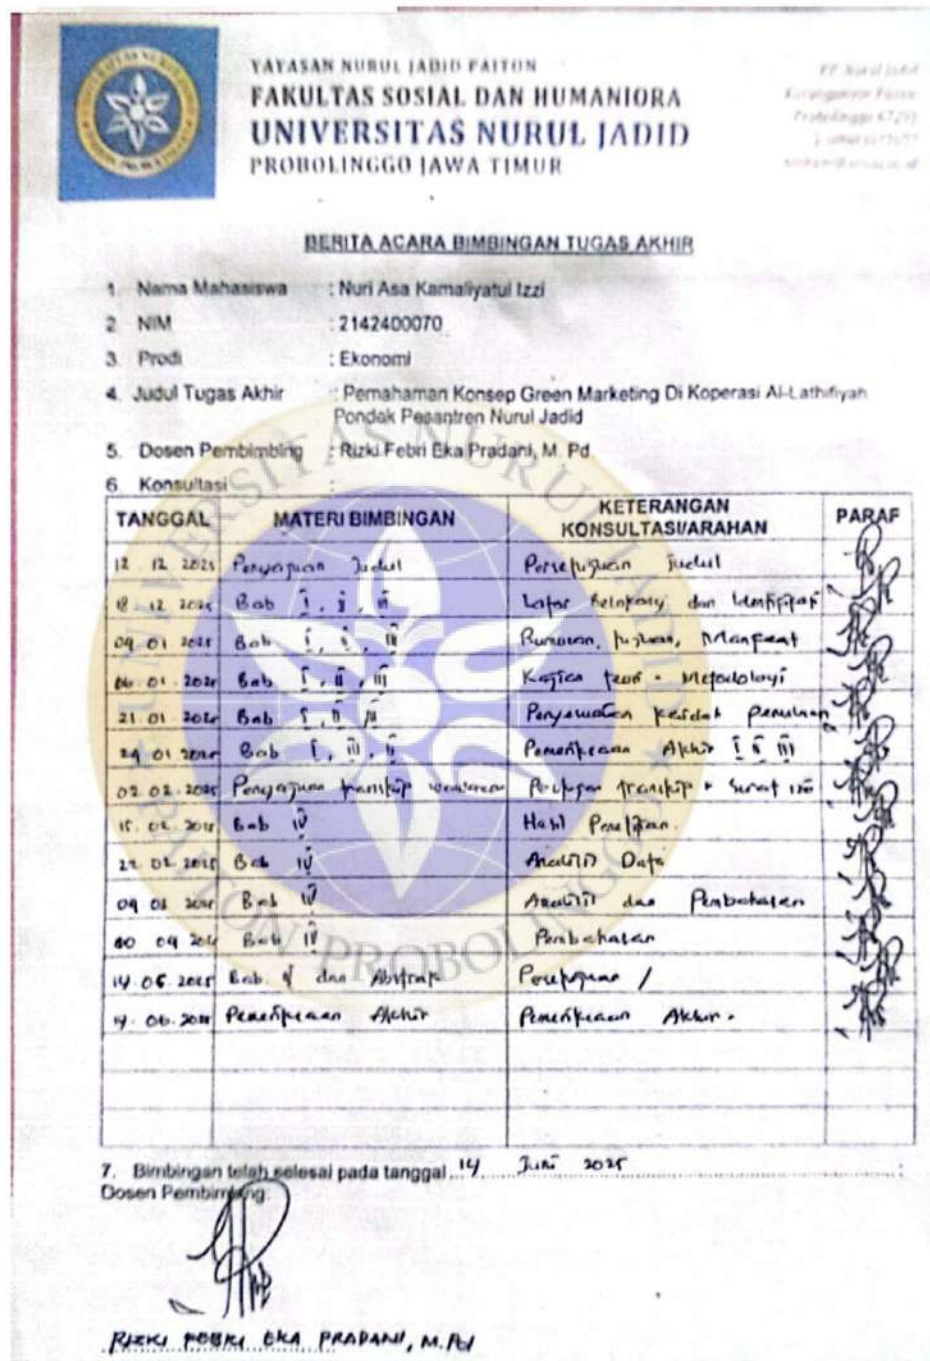 YAYASAN NURUL JADID PAITON
FAKULTAS SOSIAL DAN HUMANIORA
UNIVERSITAS NURUL JADID
PROBOLINGGO JAWA TIMUR
PP. Nurul Jadid
Karanganyar Paiton
Probolinggo 67291
BERITA ACARA BIMBINGAN TUGAS AKHIR
1. Nama Mahasiswa : Nuri Asa Kamaliyatul Izzi
2. NIM : 2142400070
3. Prodi : Ekonomi
4. Judul Tugas Akhir : Pemahaman Konsep Green Marketing Di Koperasi Al-Lathifiyah
Pondok Pesantren Nurul Jadid
5. Dosen Pembimbing : Rizki Febri Eka Pradani, M. Pd.
6. Konsultasi :
TANGGAL MATERI BIMBINGAN KETERANGAN KONSULTASI/ARAHAN PARAF
12 12 2025 Judul judul
18. 12. 2025 Bab I, II, III Latar belakang dan
09 01 2025 Bab I, II, III Rumusan, tujuan, Manfaat
06. 01. 2025 Bab I, II, III Kajian teori - Metodologi
21. 01. 2025 Bab I, II, III
29 01 2025 Bab I, III, II Pemeriksaan Akhir I II III
02. 02. 2025 transkip transkip + surat izin
15. 02. 2025 Bab IV Hasil Penelitian.
22. 02. 2025 Bab IV Analisis Data
09 03 2025 Bab IV Analisis dan Pembahasan
30 04 2025 Bab IV Pembahasan
14. 06. 2025 Bab dan Abstrak
14. 06. 2025 Pemeriksaan Akhir Pemeriksaan Akhir.
7. Bimbingan telah selesai pada tanggal 14 Juni 2025
Dosen Pembimbing:
RIZKI FEBRI EKA PRADANI, M.Pd
UNIVERSITAS NURUL JADID
PAITON PROBOLINGGO